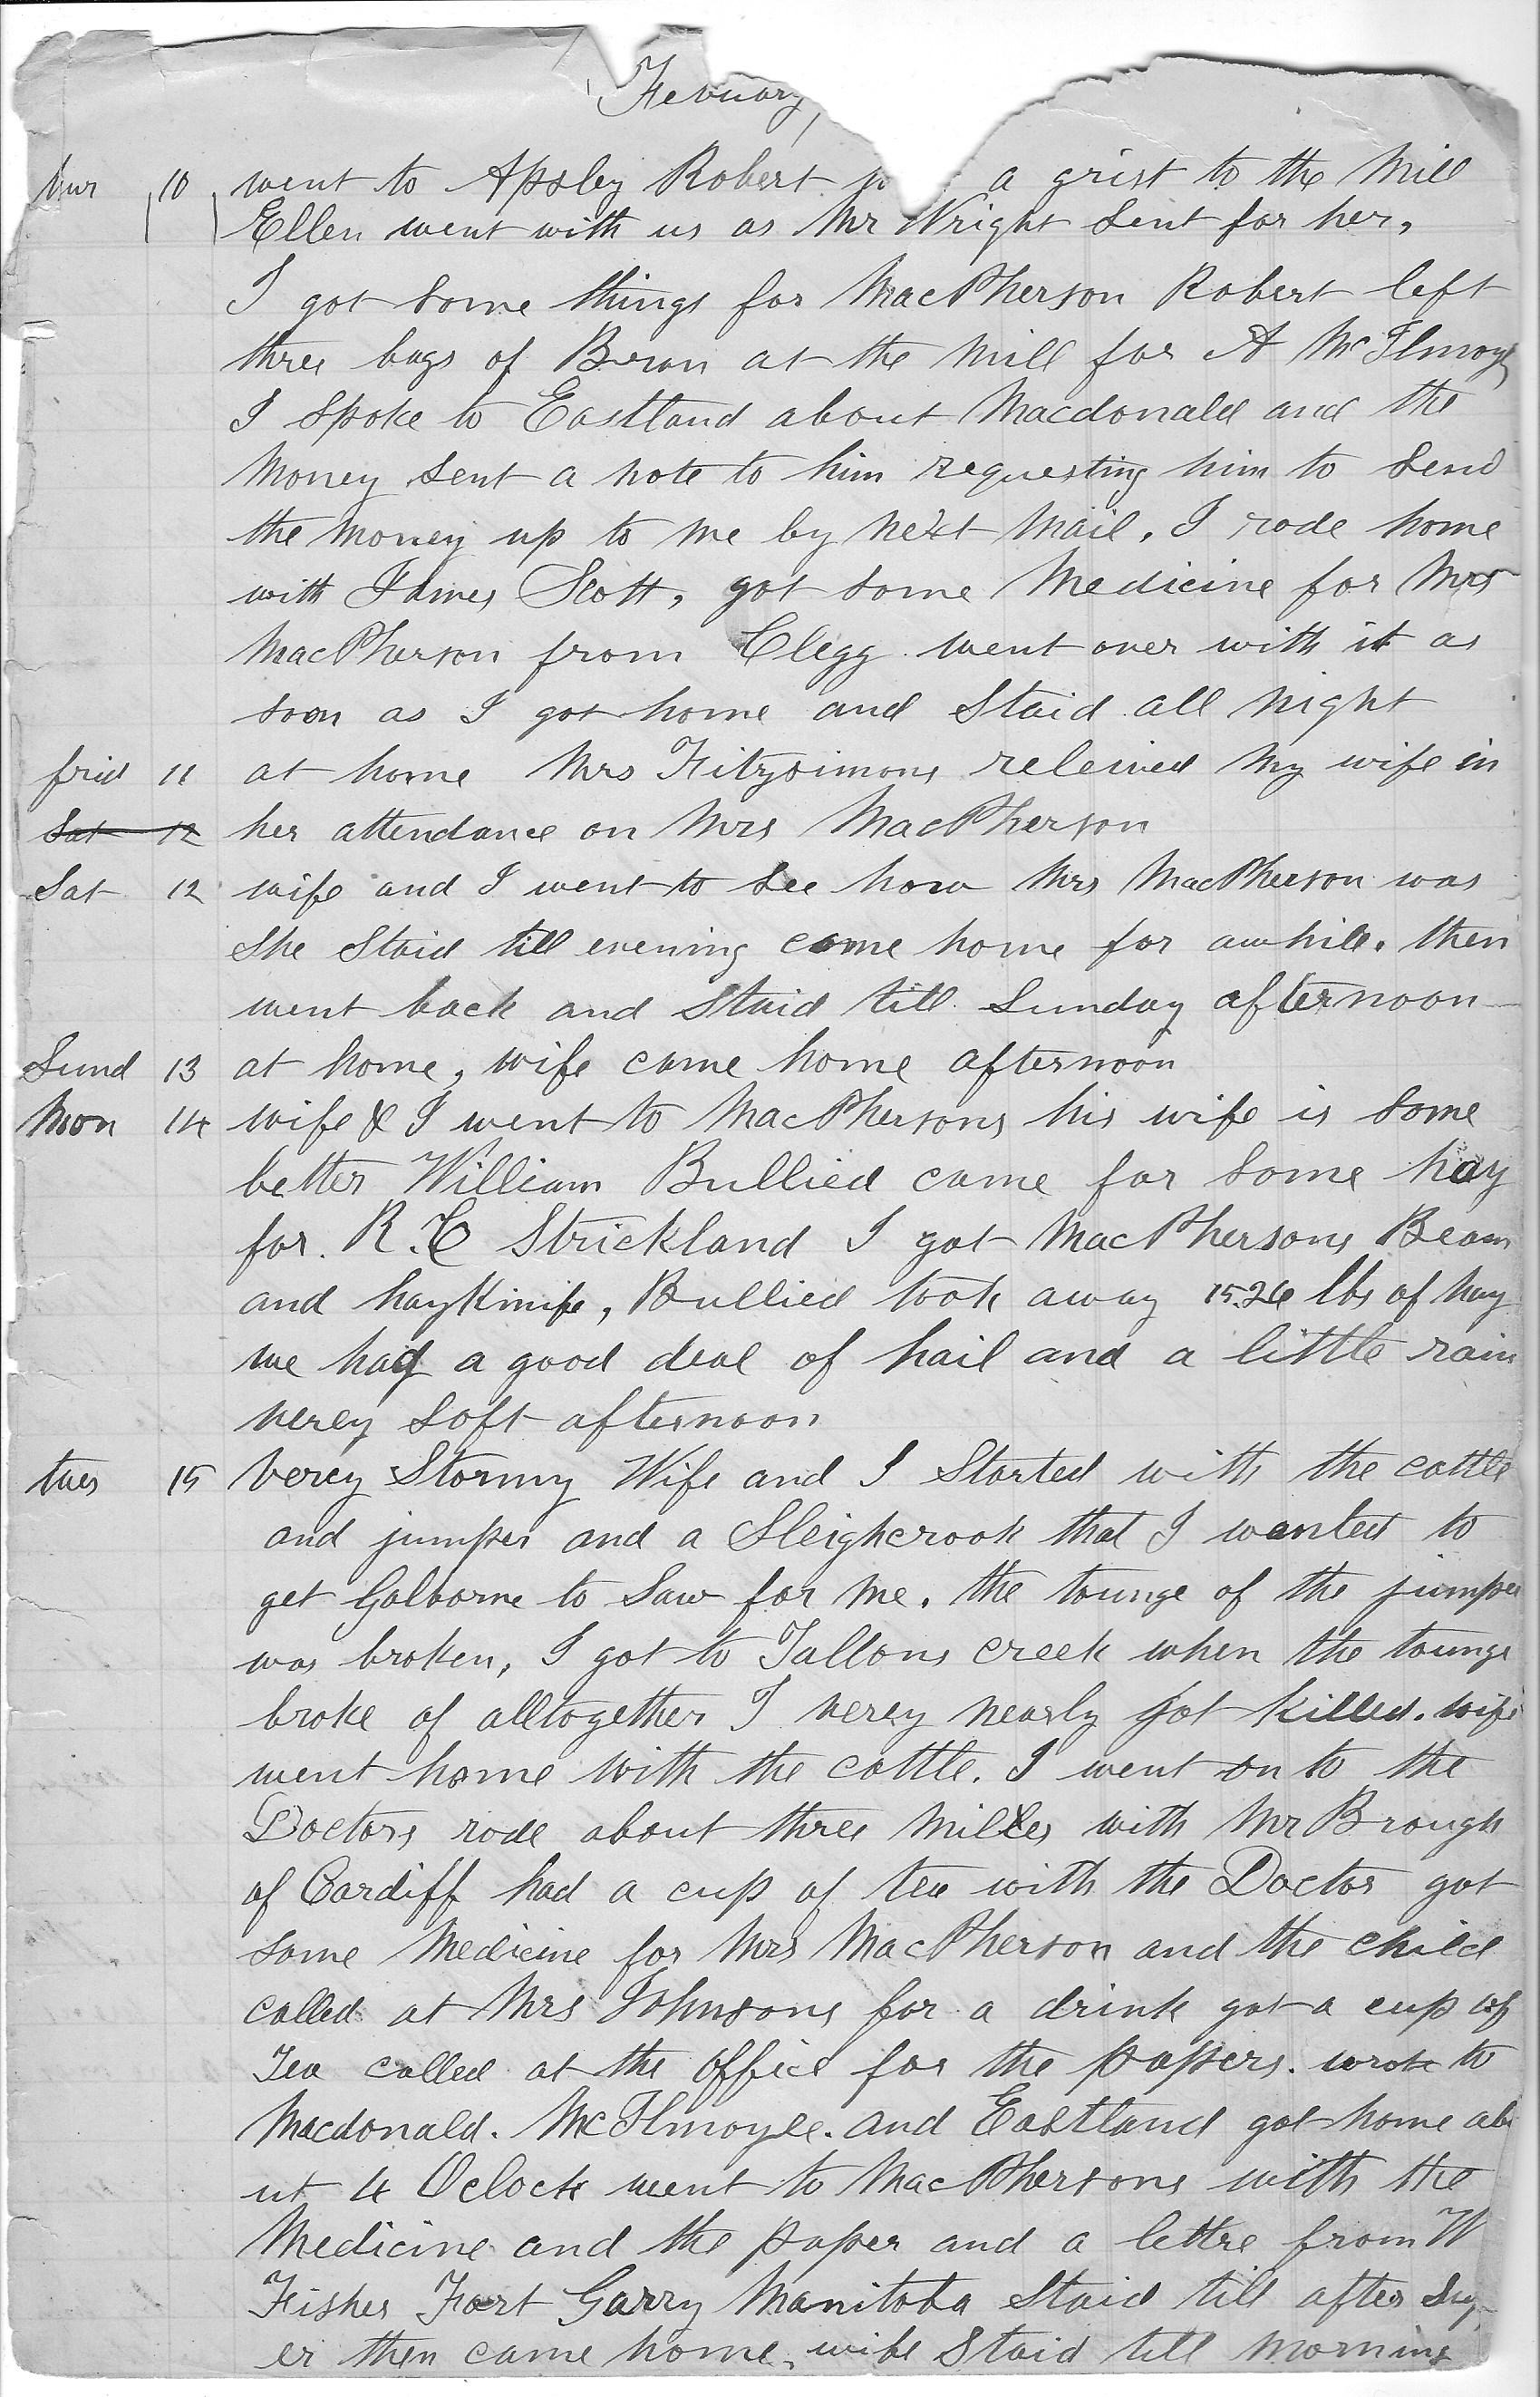 Febuary
thur 10 went to Apsley Robert a grist to the Mill
Ellen went with us as Mr Wright Sent for her,
I got some things for MacPherson Robert left
three bags of Bran at the Mill for A McIlmoyl
I Spoke to Eastland about Macdonald and the
Money Sent a note to him requesting him to Send
the Money up to me by Next Mail. I rode home
with James Scott, got some Medicine for Mrs
MacPherson from Clegg went over with it as
soon as I got home and Staid all night
frid 11 at home Mrs Fitzsimons releived My wife in
Sat 12 her attendance on Mrs MacPherson
Sat 12 wife and I went to See how Mrs MacPherson was
She Staid till evening came home for awhile. then
went back and Staid till Sunday afternoon
Sund 13 at home, wife came home afternoon
Mon 14 wife & I went to MacPhersons his wife is some
better William Bullied came for some hay
for R.C Strickland I got MacPhersons Beam
and hayKnife, Bullied took away lbs of hay
we had a good deal of hail and a little rain
verey Soft afternoon
tues 15 Verey Stormy Wife and I Started with the cattle
and jumper and a Sleighcrook that I wanted to
get Golborne to Saw for me. the tounge of the jumper
was broken, I got to Tallons creek when the tounge
broke of alltogether I verey nearly got Killed. wife
went home with the cattle. I went on to the
Doctors rode about three Miles with Mr Brough
of Cardiff had a cup of tea with the Doctor got
some Medicine for Mrs MacPherson and the child
called at Mrs Johnsons for a drink got a cup of
Tea called at the office for the papers. wrote to
Macdonald. McIlmoyle. and Eastland got home abo
ut 4 Oclock went to MacPhersons with the
Medicine and the paper and a lettre from W
Fisher Fort Garry Manitoba Staid till after Sup
er then came home. wife Staid till Morning